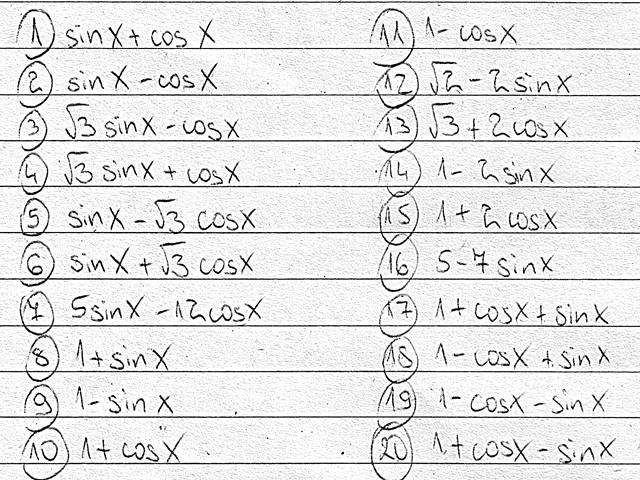 1 sinx + cosx
2 sinx - cosx
3 √3 sinx - cosx
4 √3 sinx + cosx
5 sinx - √3 cosx
6 sinx + √3 cosx
7 5sinx - 12cosx
8 1 + sinx
9 1 - sinx
10 1 + cosx
11 1 - cosx
12 √2 - 2sinx
13 √3 + 2cosx
14 1 - 2sinx
15 1 + 2cosx
16 5 - 7sinx
17 1 + cosx + sinx
18 1 - cosx + sinx
19 1 - cosx - sinx
20 1 + cosx - sinx